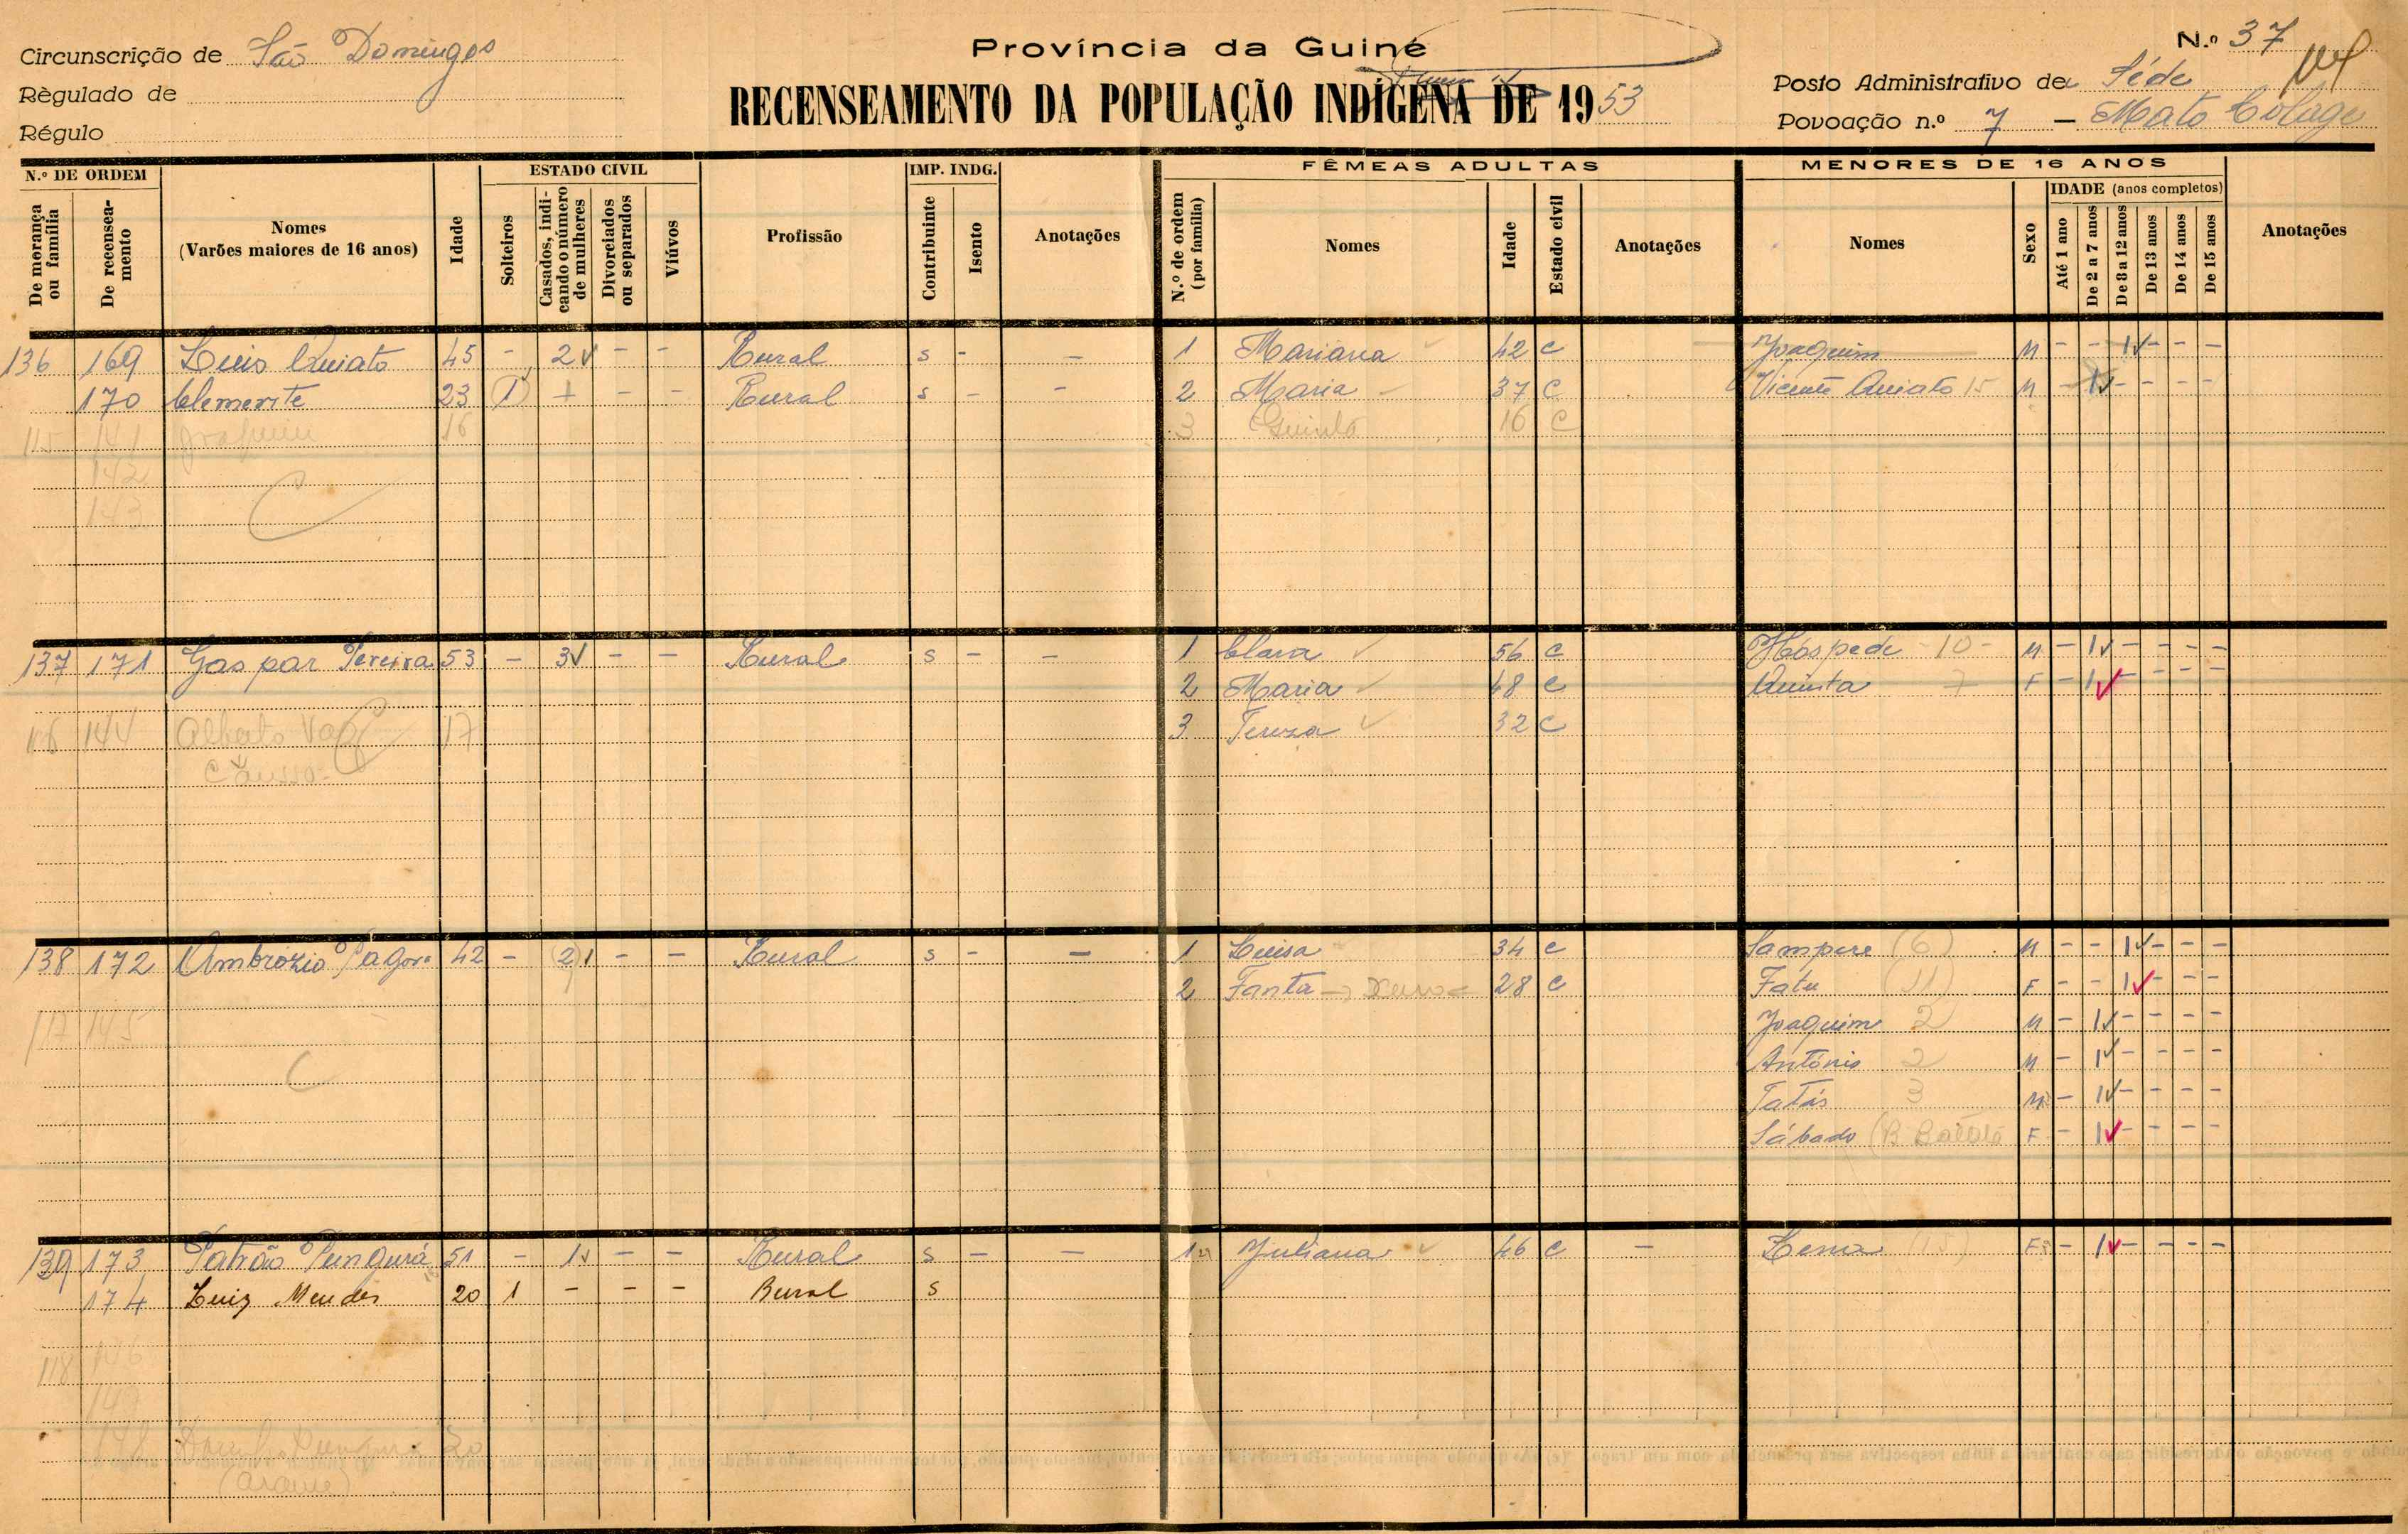 Província da Guiné
N.º 37
Circunscrição de São Domingos
Règulado de
Régulo
RECENSEAMENTO DA POPULAÇÃO INDÍGENA DE 1953
Posto Administrativo de Séde
Povoação n.º 7 — Mato
N.º DE ORDEM
De morança ou família
De recenseamento
Nomes
(Varões maiores de 16 anos)
Idade
ESTADO CIVIL
Solteiros
Casados, indicando o número de mulheres
Divorciados ou separados
Viúvos
Profissão
IMP. INDG.
Contribuinte
Isento
Anotações
FÊMEAS ADULTAS
N.º de ordem (por família)
Nomes
Idade
Estado civil
Anotações
MENORES DE 16 ANOS
Nomes
Sexo
IDADE (anos completos)
Até 1 ano
De 2 a 7 anos
De 8 a 12 anos
De 13 anos
De 14 anos
De 15 anos
Anotações
136 169 Luis Quiato 45 - 2 ✓ - - Rural s - - 1 Mariana 42 c Joaquim M - - 1 ✓ - - -
170 Clemente 23 1 - - Rural s - - 2 Maria 37 c Vicente Quiato 15 M - 1 ✓ - - - -
115 141 Joaquim 16 3 Quinta 16 c
142
143
137 171 Gaspar Pereira 53 - 3 ✓ - - Rural s - - 1 Clara ✓ 56 c Hóspede 10 - M - 1 ✓ - - - -
2 Maria ✓ 48 c Quinta 7 F - 1 ✓ - - - -
116 144 Alberto Vaz 17 3 Tereza ✓ 32 c
138 172 Ambrozio 42 - 2 1 - - Rural s - - 1 Luisa 34 c Sampere (6) M - - 1 ✓ - - -
2 Fanta 28 c Fatu (11) F - - 1 ✓ - - -
117 145 Joaquim 2 M - 1 ✓ - - - -
António 2 M - 1 ✓ - - - -
Tatás 3 M - 1 ✓ - - - -
Sábado F - 1 ✓ - - - -
139 173 Patrão Pungurá 51 - 1 ✓ - - Rural s - - 1 Juliana ✓ 46 c - F - 1 ✓ - - - -
174 Luiz Mendes 20 1 - - - Rural s
118 146
148 20